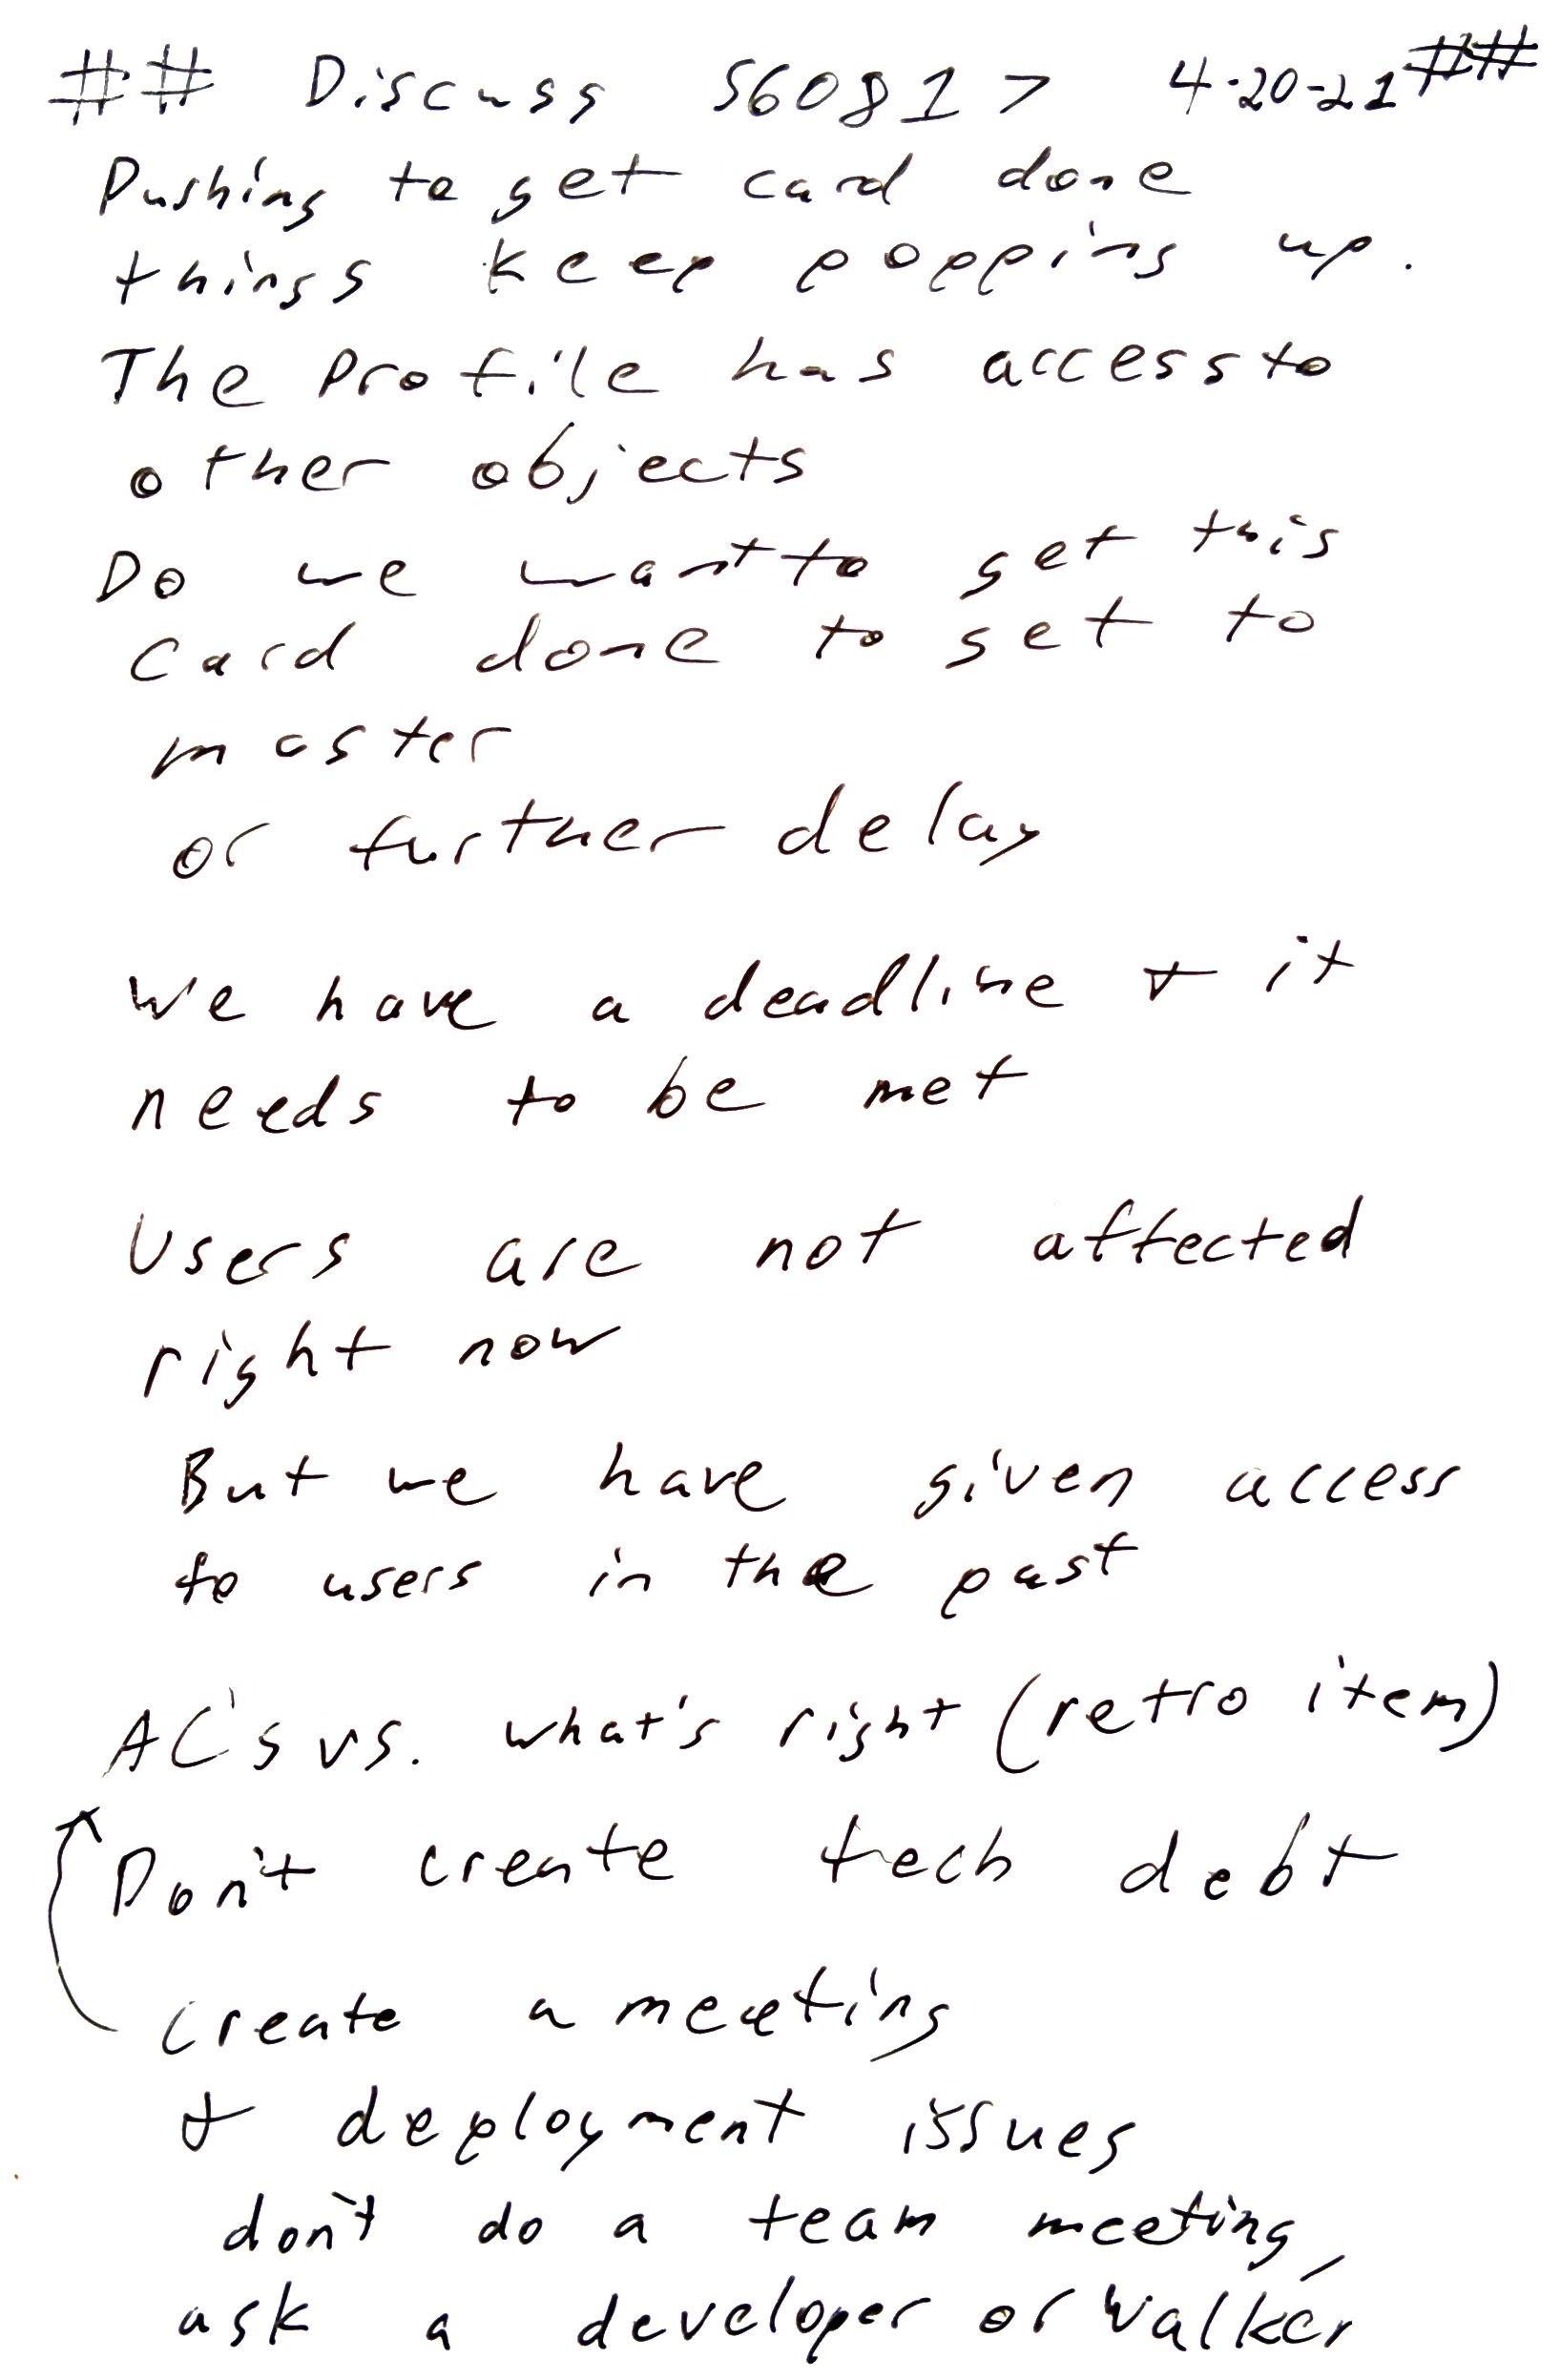 ## Discuss 560817 4-20-21 ##
Pushing to get card done
things keep popping up.
The Profile has access to
other objects
Do we want to get this
card done to get to
master
or further delay
We have a deadline & it
needs to be met
Users are not affected
right now
But we have given access
to users in the past
AC's vs. what's right (retro item)
Don't create tech debt
create a meeting
& deployment issues
don't do a team meeting,
ask a developer or Walker